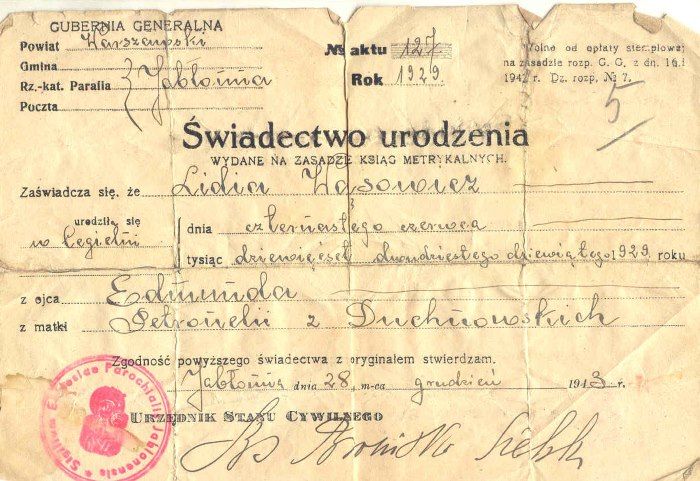 GUBERNIA GENERALNA
Powiat Warszawski
Gmina
Rz.-kat. Parafia Jabłonna
Poczta
№ aktu 127
Rok 1929
Wolne od opłaty stemplowej
na zasadzie rozp. G. G. z dn. 16.I
1942 r. Dz. rozp. № 7.
5
Świadectwo urodzenia
WYDANE NA ZASADZIE KSIĄG METRYKALNYCH.
Zaświadcza się, że Lidia Wąsowicz
urodziła się
w Cegielni
dnia czternastego czerwca
tysiąc dziewięćset dwudziestego dziewiątego 1929 roku
z ojca Edmunda
z matki Petroneli z Duchnowskich
Zgodność powyższego świadectwa z oryginałem stwierdzam.
Jabłonna dnia 28, m-ca grudzień 1943 r.
URZĘDNIK STANU CYWILNEGO
Ks
Parochialis Jablonensis